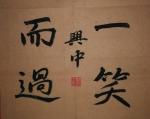 一笑
而過
興中